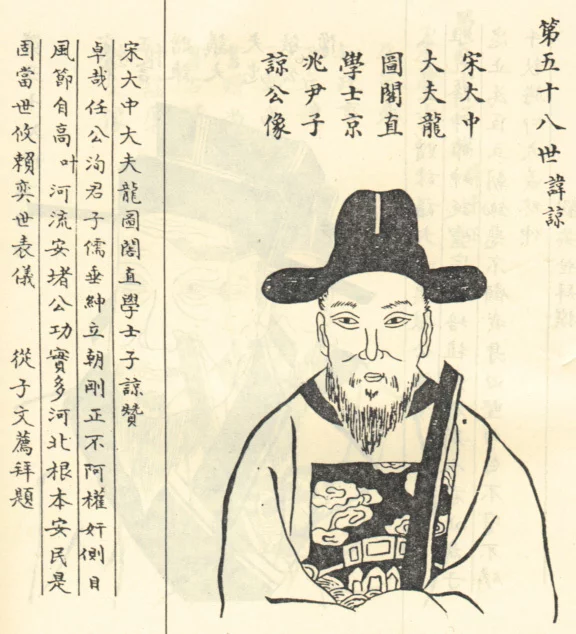 第五十八世諱諒
宋大中
大夫龍
圖閣直
學士京
兆尹子
諒公像
宋大中大夫龍圖閣直學士子諒贊
卓哉任公洵君子儒垂紳立朝剛正不阿權奸側目
風節自高叶河流安堵公功實多河北根本安民是
固當世攸賴奕世表儀 從子文薦拜題